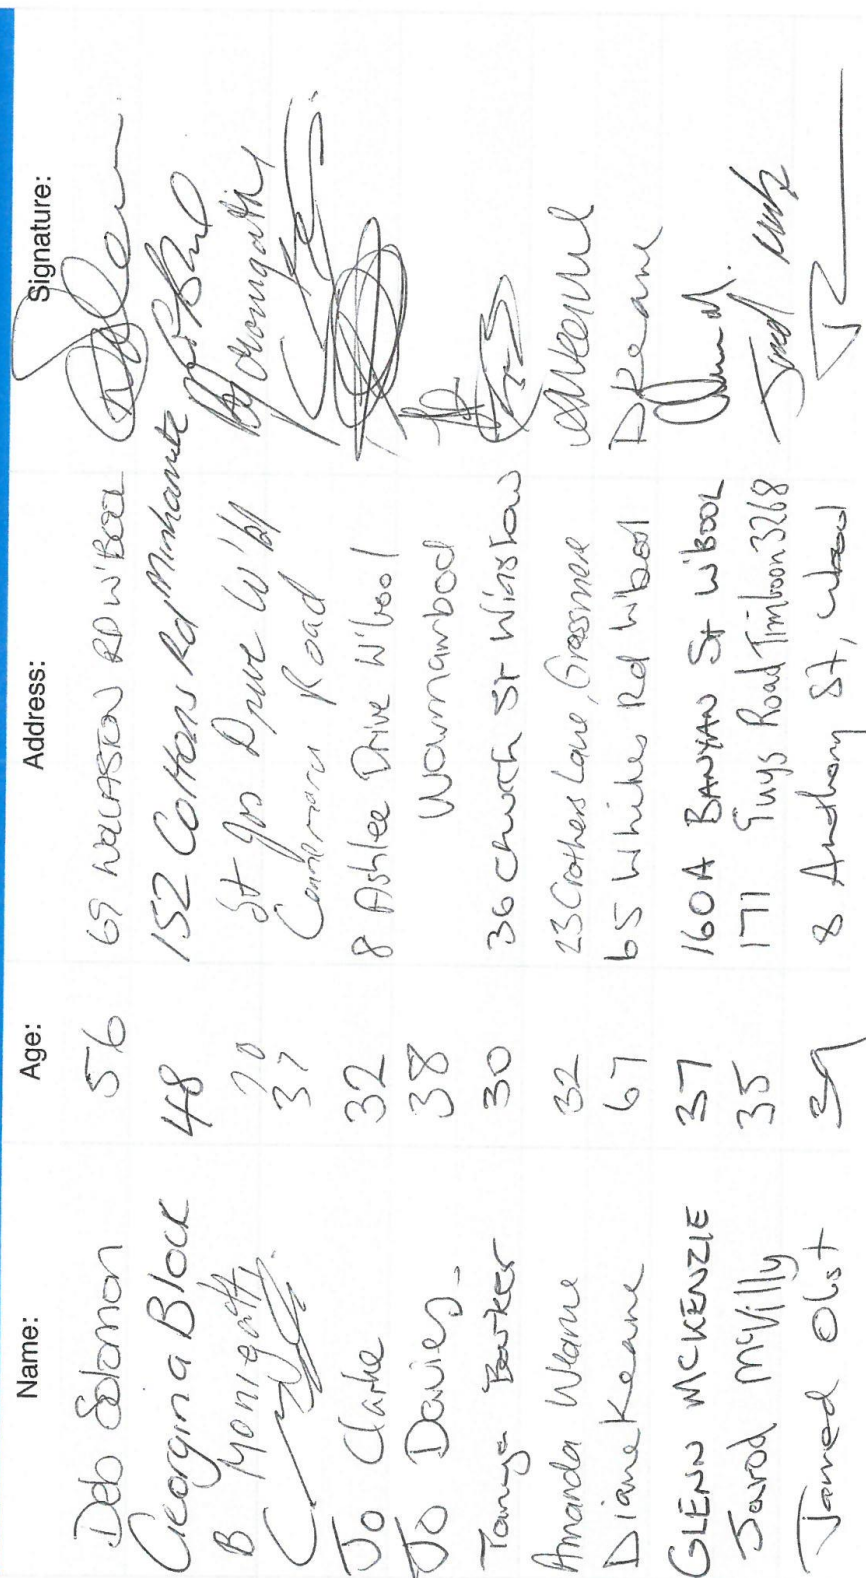 Name: Age: Address: Signature:
Deb Solomon 56 69 WOLLASTON RD W'BOOL
Georgina Block 48 152 Cottons Rd Minhamite
B Monigatti 70 St Jos Drive W'bl B Monigatti
37 Connemara Road
Jo Clarke 32 8 Ashlee Drive W'bool
Jo Davies 38 Warrnambool
Tanya Barker 30 36 Church St Winslow
Amanda Wearne 32 23 Crothers Lane, Grassmere AWearne
Diane Keane 67 65 Whites Rd W'bool DKeane
GLENN MCKENZIE 37 160A BANYAN St W'BOOL
Jarod McVilly 35 171 Guys Road Timboon 3268
Jarred Obst 29 8 Anthony St, W'bool